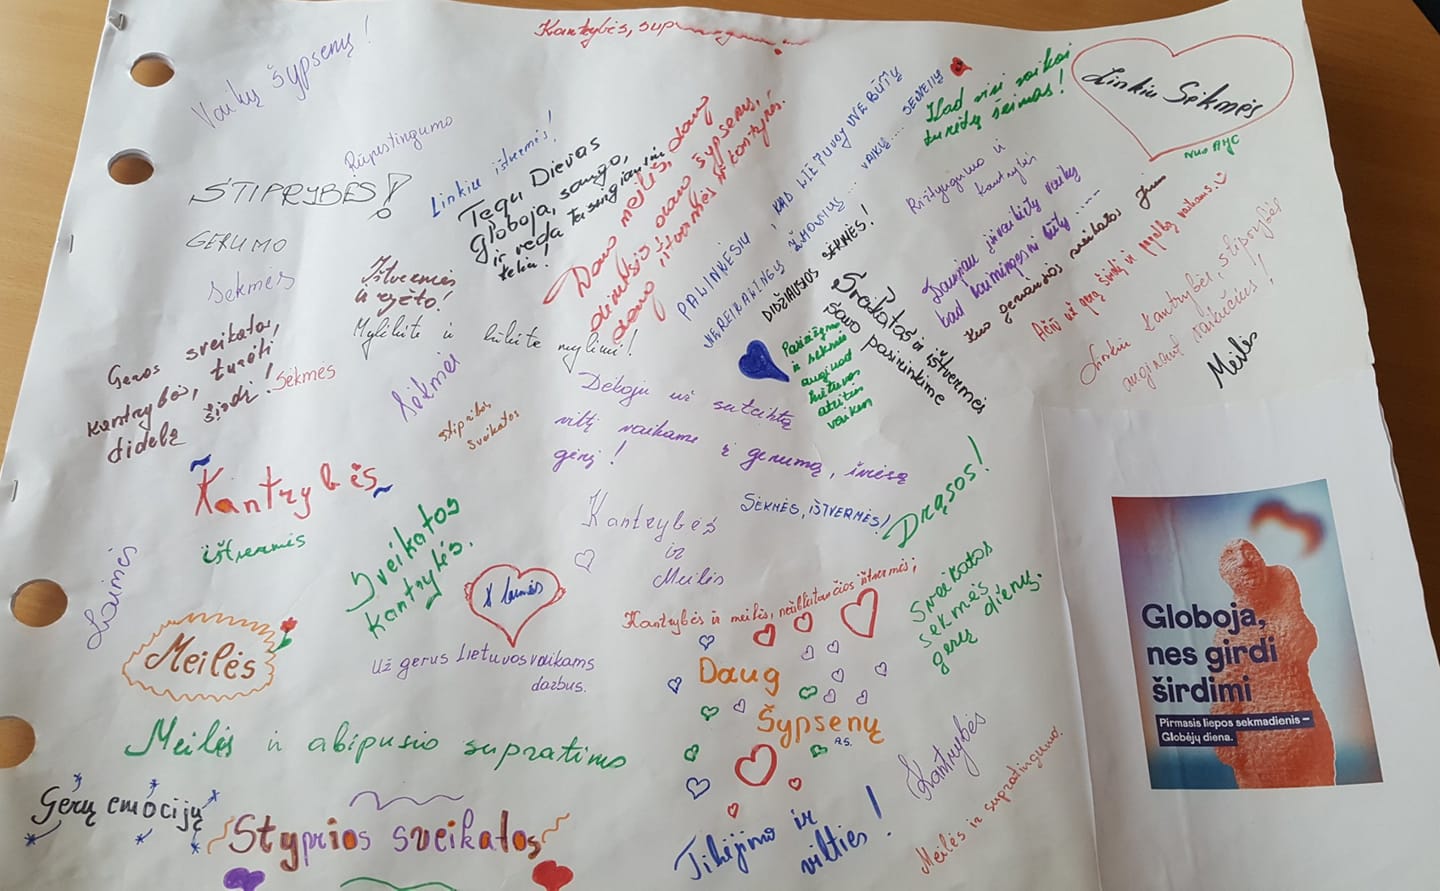 Kantrybės,
Vaikų šypsenų!
Rūpestingumo
STIPRYBĖS!
GERUMO
Sėkmės
Linkiu ištvermės!
Tegu Dievas
globoja, saugo,
ir veda
toliau!
Daug meilės, daug
daug šypsenų,
daug ištvermės ir kantrybės.
PALINKĖSIU, KAD LIETUVOJ NEBŪTŲ
NEREIKALINGŲ ŽMONIŲ... VAIKŲ.... SENELIŲ
DIDŽIAUSIOS SĖKMĖS!
Kad visi vaikai
turėtų šeimas!
Linkiu Sėkmės
nuo AYC
Ryžtingumo ir
kantrybės
Daugiau įtraukitų vaikų
kad laimingesni būtų ....
Kuo geriausios sveikatos Jums
Ačiū už gerą širdį ir pagalbą vaikams.
Linkiu kantrybės, stiprybės
auginant vaikučius!
Meilės
Ištvermės
ir ryžto!
Mylėkite ir būkite mylimi!
Geros sveikatos,
kantrybės, turėti
didelę širdį!
Sėkmės
Sėkmės
stiprios
sveikatos
Pasiryžimo
ir sėkmės
auginant
Lietuvos
ateities
vaikus
Sveikatos ir ištvermės
savo pasirinkime
Dėkoju už suteiktą
viltį vaikams ir gerumą, šviesą
gėrį!
Kantrybės
ištvermės
Sveikatos
kantrybės.
Kantrybės
ir
Meilės
SĖKMĖS, IŠTVERMĖS!
Drąsos!
Laimės
Meilės
laimės
Už gerus Lietuvos vaikams
darbus.
Kantrybės ir meilės, neišsenkančios ištvermės;
Daug
Šypsenų
A.S.
Sveikatos
sėkmės
gerų dienų.
Globoja,
nes girdi
širdimi
Pirmasis liepos sekmadienis –
Globėjų diena.
Meilės ir abipusio supratimo
Gerų emocijų
Styprios sveikatos
Tikėjimo ir
vilties!
Kantrybės
Meilės ir supratingumo.